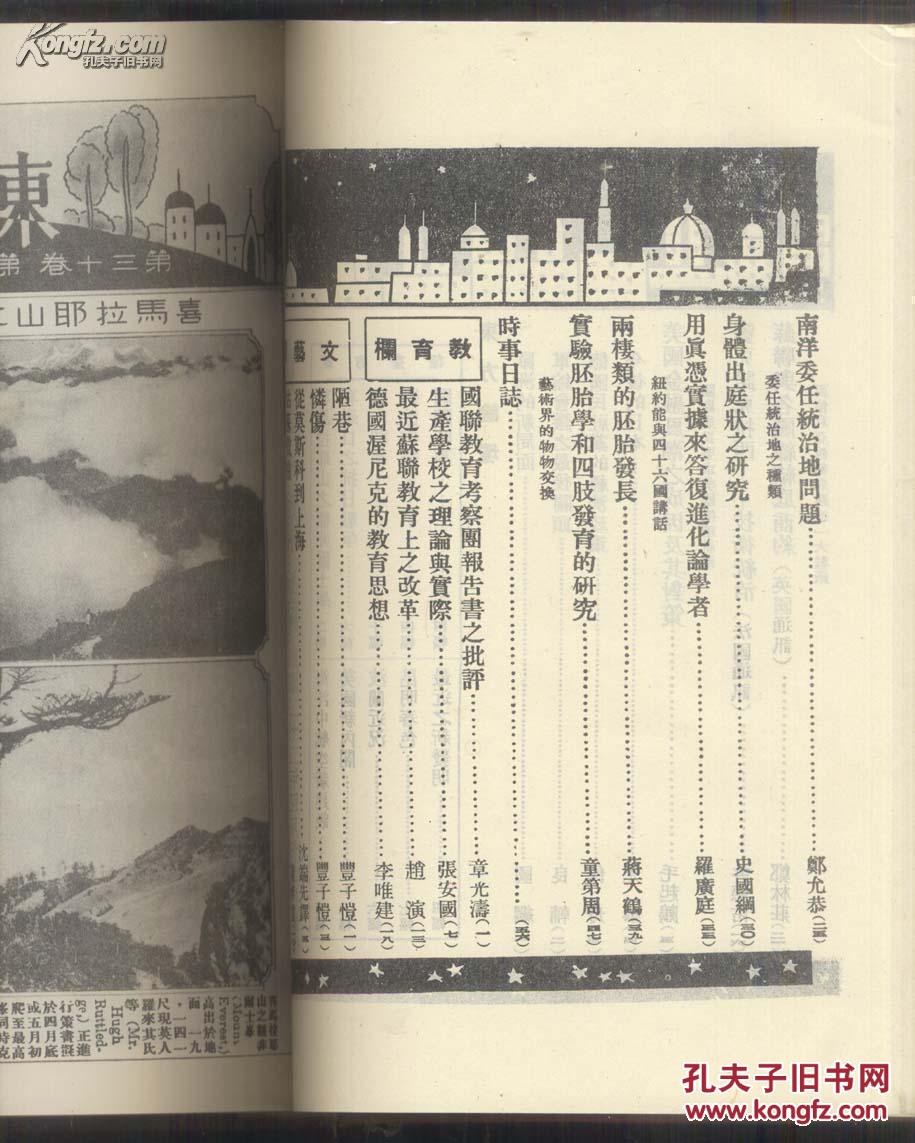 Kongfz.com
孔夫子旧书网
南洋委任統治地問題……鄭允恭(二三)
委任統治地之種類
身體出庭狀之研究……史國綱(三〇)
用眞憑實據來答復進化論學者……羅廣庭(三三)
紐約能與四十六國講話
兩棲類的胚胎發長……蔣天鶴(三九)
實驗胚胎學和四肢發育的研究……童第周(四七)
藝術界的物物交換
時事日誌……(五六)
教育欄
國聯教育考察團報告書之批評……章光濤(一)
生產學校之理論與實際……張安國(七)
最近蘇聯教育上之改革……趙演(一三)
德國渥尼克的教育思想……李唯建(一八)
文藝
陋巷……豐子愷(一)
憐傷……豐子愷(三)
從莫斯科到上海……沈端先譯
東
第三十卷 第
喜馬拉耶山
高出於地
面一九
·一四一
尺現英人
羅來其氏
等(Mr.
Hugh
Ruttled-
ge)正進
行策書擬
於四月底
或五月初
爬至最高
孔夫子旧书网
www.kongfz.com